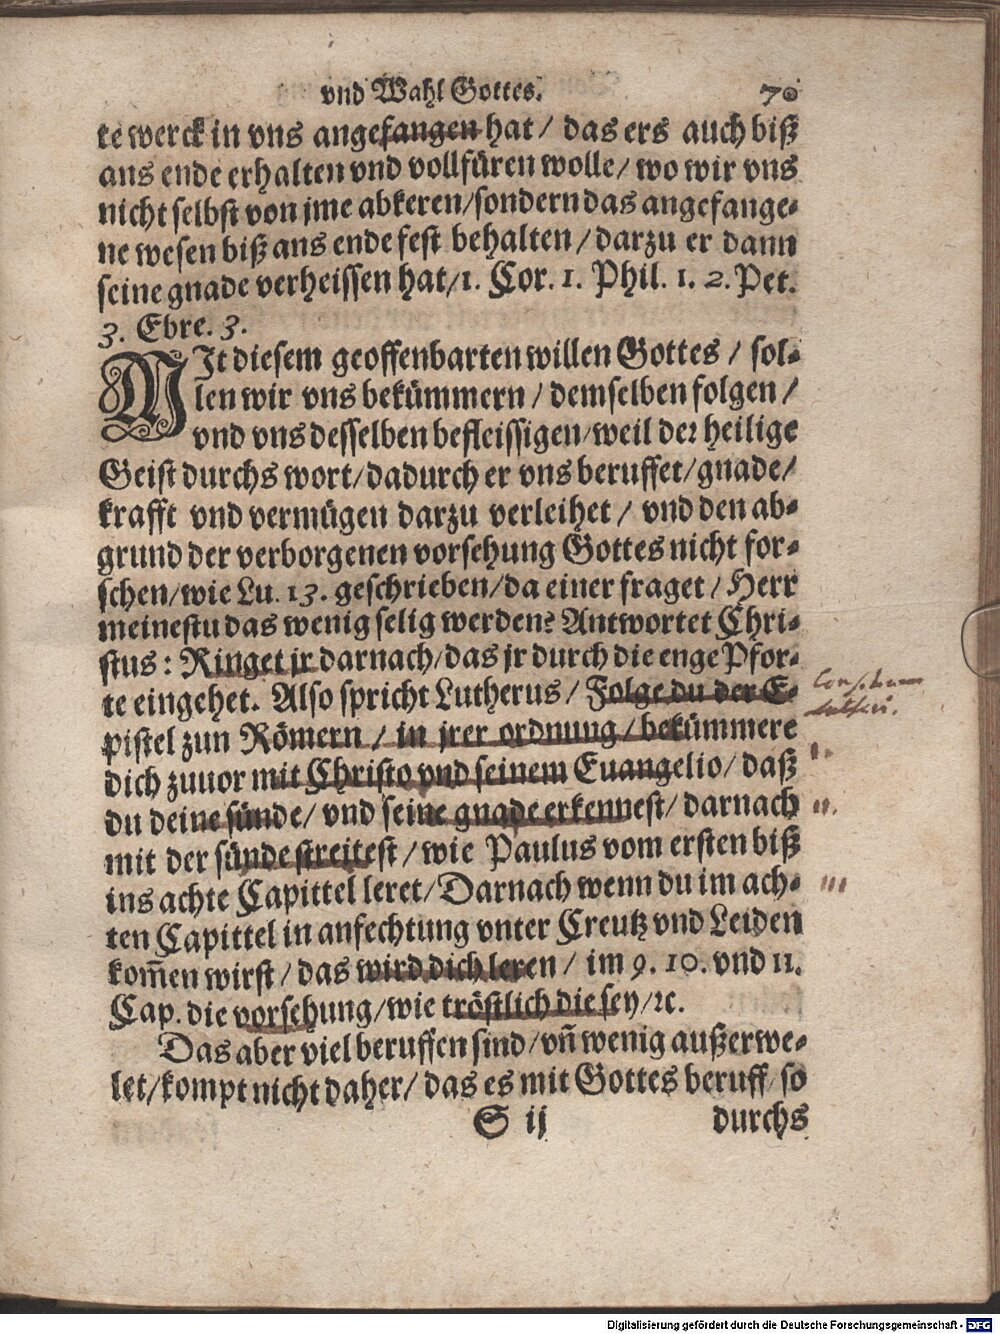 vnd Wahl Gottes. 70
te werck in vns angefangen hat / das ers auch biß
ans ende erhalten vnd vollfüren wolle / wo wir vns
nicht selbst von jme abkeren / sondern das angefange-
ne wesen biß ans ende fest behalten / darzu er dann
seine gnade verheissen hat / 1. Cor. 1. Phil. 1. 2. Pet.
3. Ebre. 3.
MIt diesem geoffenbarten willen Gottes / sol-
len wir vns bekümmern / demselben folgen /
vnd vns desselben befleissigen / weil der heilige
Geist durchs wort / dadurch er vns beruffet / gnade /
krafft vnd vermügen darzu verleihet / vnd den ab-
grund der verborgenen vorsehung Gottes nicht for-
schen / wie Lu. 13. geschrieben / da einer fraget / Herr
meinestu das wenig selig werden? Antwortet Chri-
stus : Ringet jr darnach / das jr durch die enge Pfor-
te eingehet. Also spricht Lutherus / Folge du der E-
pistel zun Römern / in jrer ordnung / bekümmere
dich zuuor mit Christo vnd seinem Euangelio / daß
du deine sünde / vnd seine gnade erkennest / darnach
mit der sünde streitest / wie Paulus vom ersten biß
ins achte Capittel leret / Darnach wenn du im ach-
ten Capittel in anfechtung vnter Creutz vnd Leiden
kom̃en wirst / das wird dich leren / im 9. 10. vnd 11.
Cap. die vorsehung / wie tröstlich die sey / ꝛc.
Das aber viel beruffen sind / vñ wenig außerwe-
let / kompt nicht daher / das es mit Gottes beruff / so
S ij durchs
ı.
ıı.
ııı
Digitalisierung gefördert durch die Deutsche Forschungsgemeinschaft - DFG